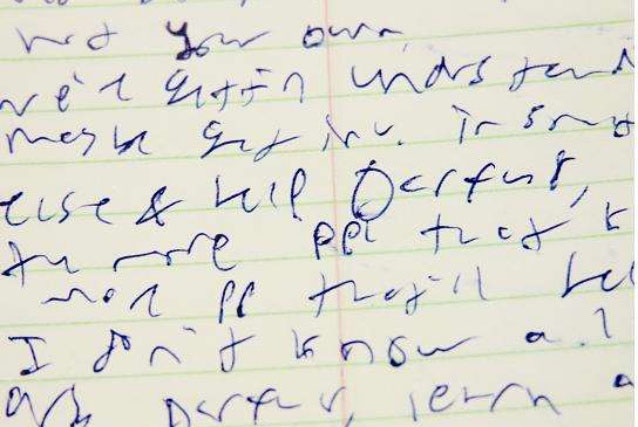 not your own
we'r gettin undrstand
maybe get inv. in
else & help Darfur,
the more ppl that k
mor pp that'll hel
I don't know a.l
Darfur, learn a